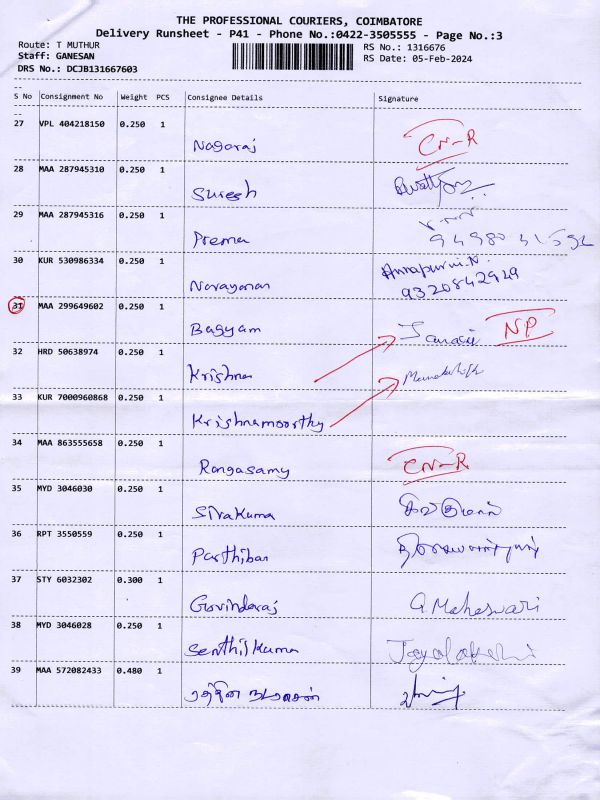 THE PROFESSIONAL COURIERS, COIMBATORE
Delivery Runsheet - P41 - Phone No.:0422-3505555 - Page No.:3
Route: T MUTHUR
Staff: GANESAN
DRS No.: DCJB131667603
RS No.: 1316676
RS Date: 05-Feb-2024
S No Consignment No Weight PCS Consignee Details Signature
27 VPL 404218150 0.250 1
Nagaraj CN-R
28 MAA 287945310 0.250 1
Suresh
29 MAA 287945316 0.250 1
Prema
30 KUR 530986334 0.250 1
Narayanan Annapurni.N
9320842929
31 MAA 299649602 0.250 1
Bagyam NP
32 HRD 50638974 0.250 1
Krishna
33 KUR 7000960868 0.250 1
Krishnamoorthy
34 MAA 863555658 0.250 1
Rangasamy CN-R
35 MYD 3046030 0.250 1
Sivakuma
36 RPT 3550559 0.250 1
Parthiban
37 STY 6032302 0.300 1
Govindaraj G.Maheswari
38 MYD 3046028 0.250 1
Senthilkuma
39 MAA 572082433 0.480 1